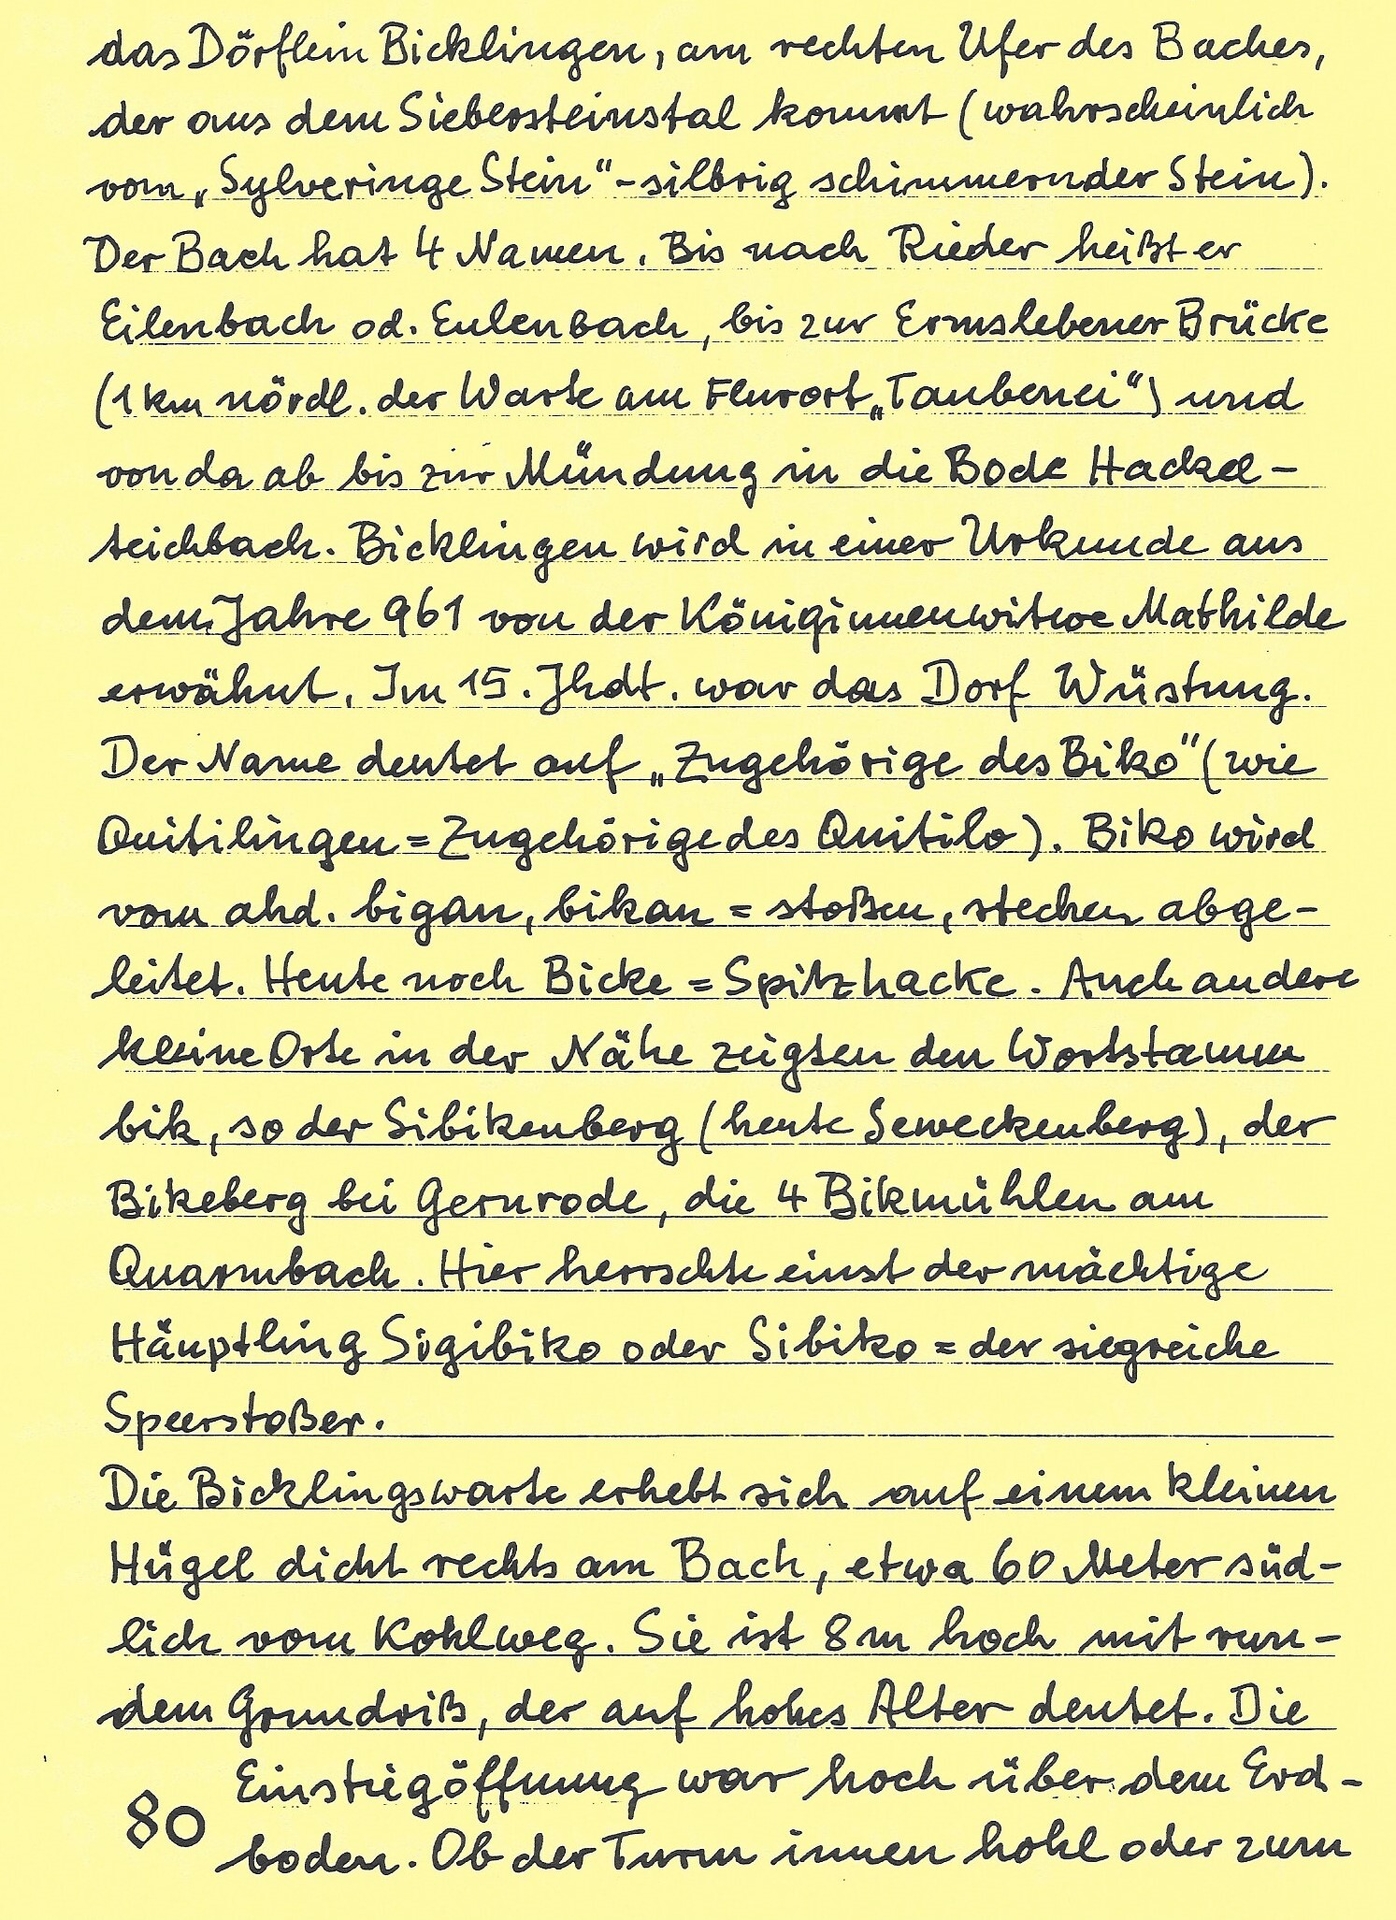 das Dörflein Bicklingen, am rechten Ufer des Baches,
der aus dem Siebersteinstal kommt (wahrscheinlich
vom „Sylveringe Stein“ - silbrig schimmernder Stein).
Der Bach hat 4 Namen. Bis nach Rieder heißt er
Eilenbach od. Eulenbach, bis zur Ermslebener Brücke
(1 km nördl. der Warte am Flurort „Taubenei“) und
von da ab bis zur Mündung in die Bode Hackel-
teichbach. Bicklingen wird in einer Urkunde aus
dem Jahre 961 von der Königinnenwitwe Mathilde
erwähnt. Im 15. Jhdt. war das Dorf Wüstung.
Der Name deutet auf „Zugehörige des Biko“ (wie
Quitilingen = Zugehörige des Quitilo). Biko wird
vom ahd. bigan, bikan = stoßen, stechen abge-
leitet. Heute noch Bicke = Spitzhacke. Auch andere
kleine Orte in der Nähe zeigten den Wortstamm
bik, so der Sibikenberg (heute Seweckenberg), der
Bikeberg bei Gernrode, die 4 Bikmühlen am
Quarmbach. Hier herrschte einst der mächtige
Häuptling Sigibiko oder Sibiko = der siegreiche
Speerstoßer.
Die Bicklingswarte erhebt sich auf einem kleinen
Hügel dicht rechts am Bach, etwa 60 Meter süd-
lich vom Kohlweg. Sie ist 8 m hoch mit run-
dem Grundriß, der auf hohes Alter deutet. Die
Einstiegöffnung war hoch über dem Erd-
80 boden. Ob der Turm innen hohl oder zum